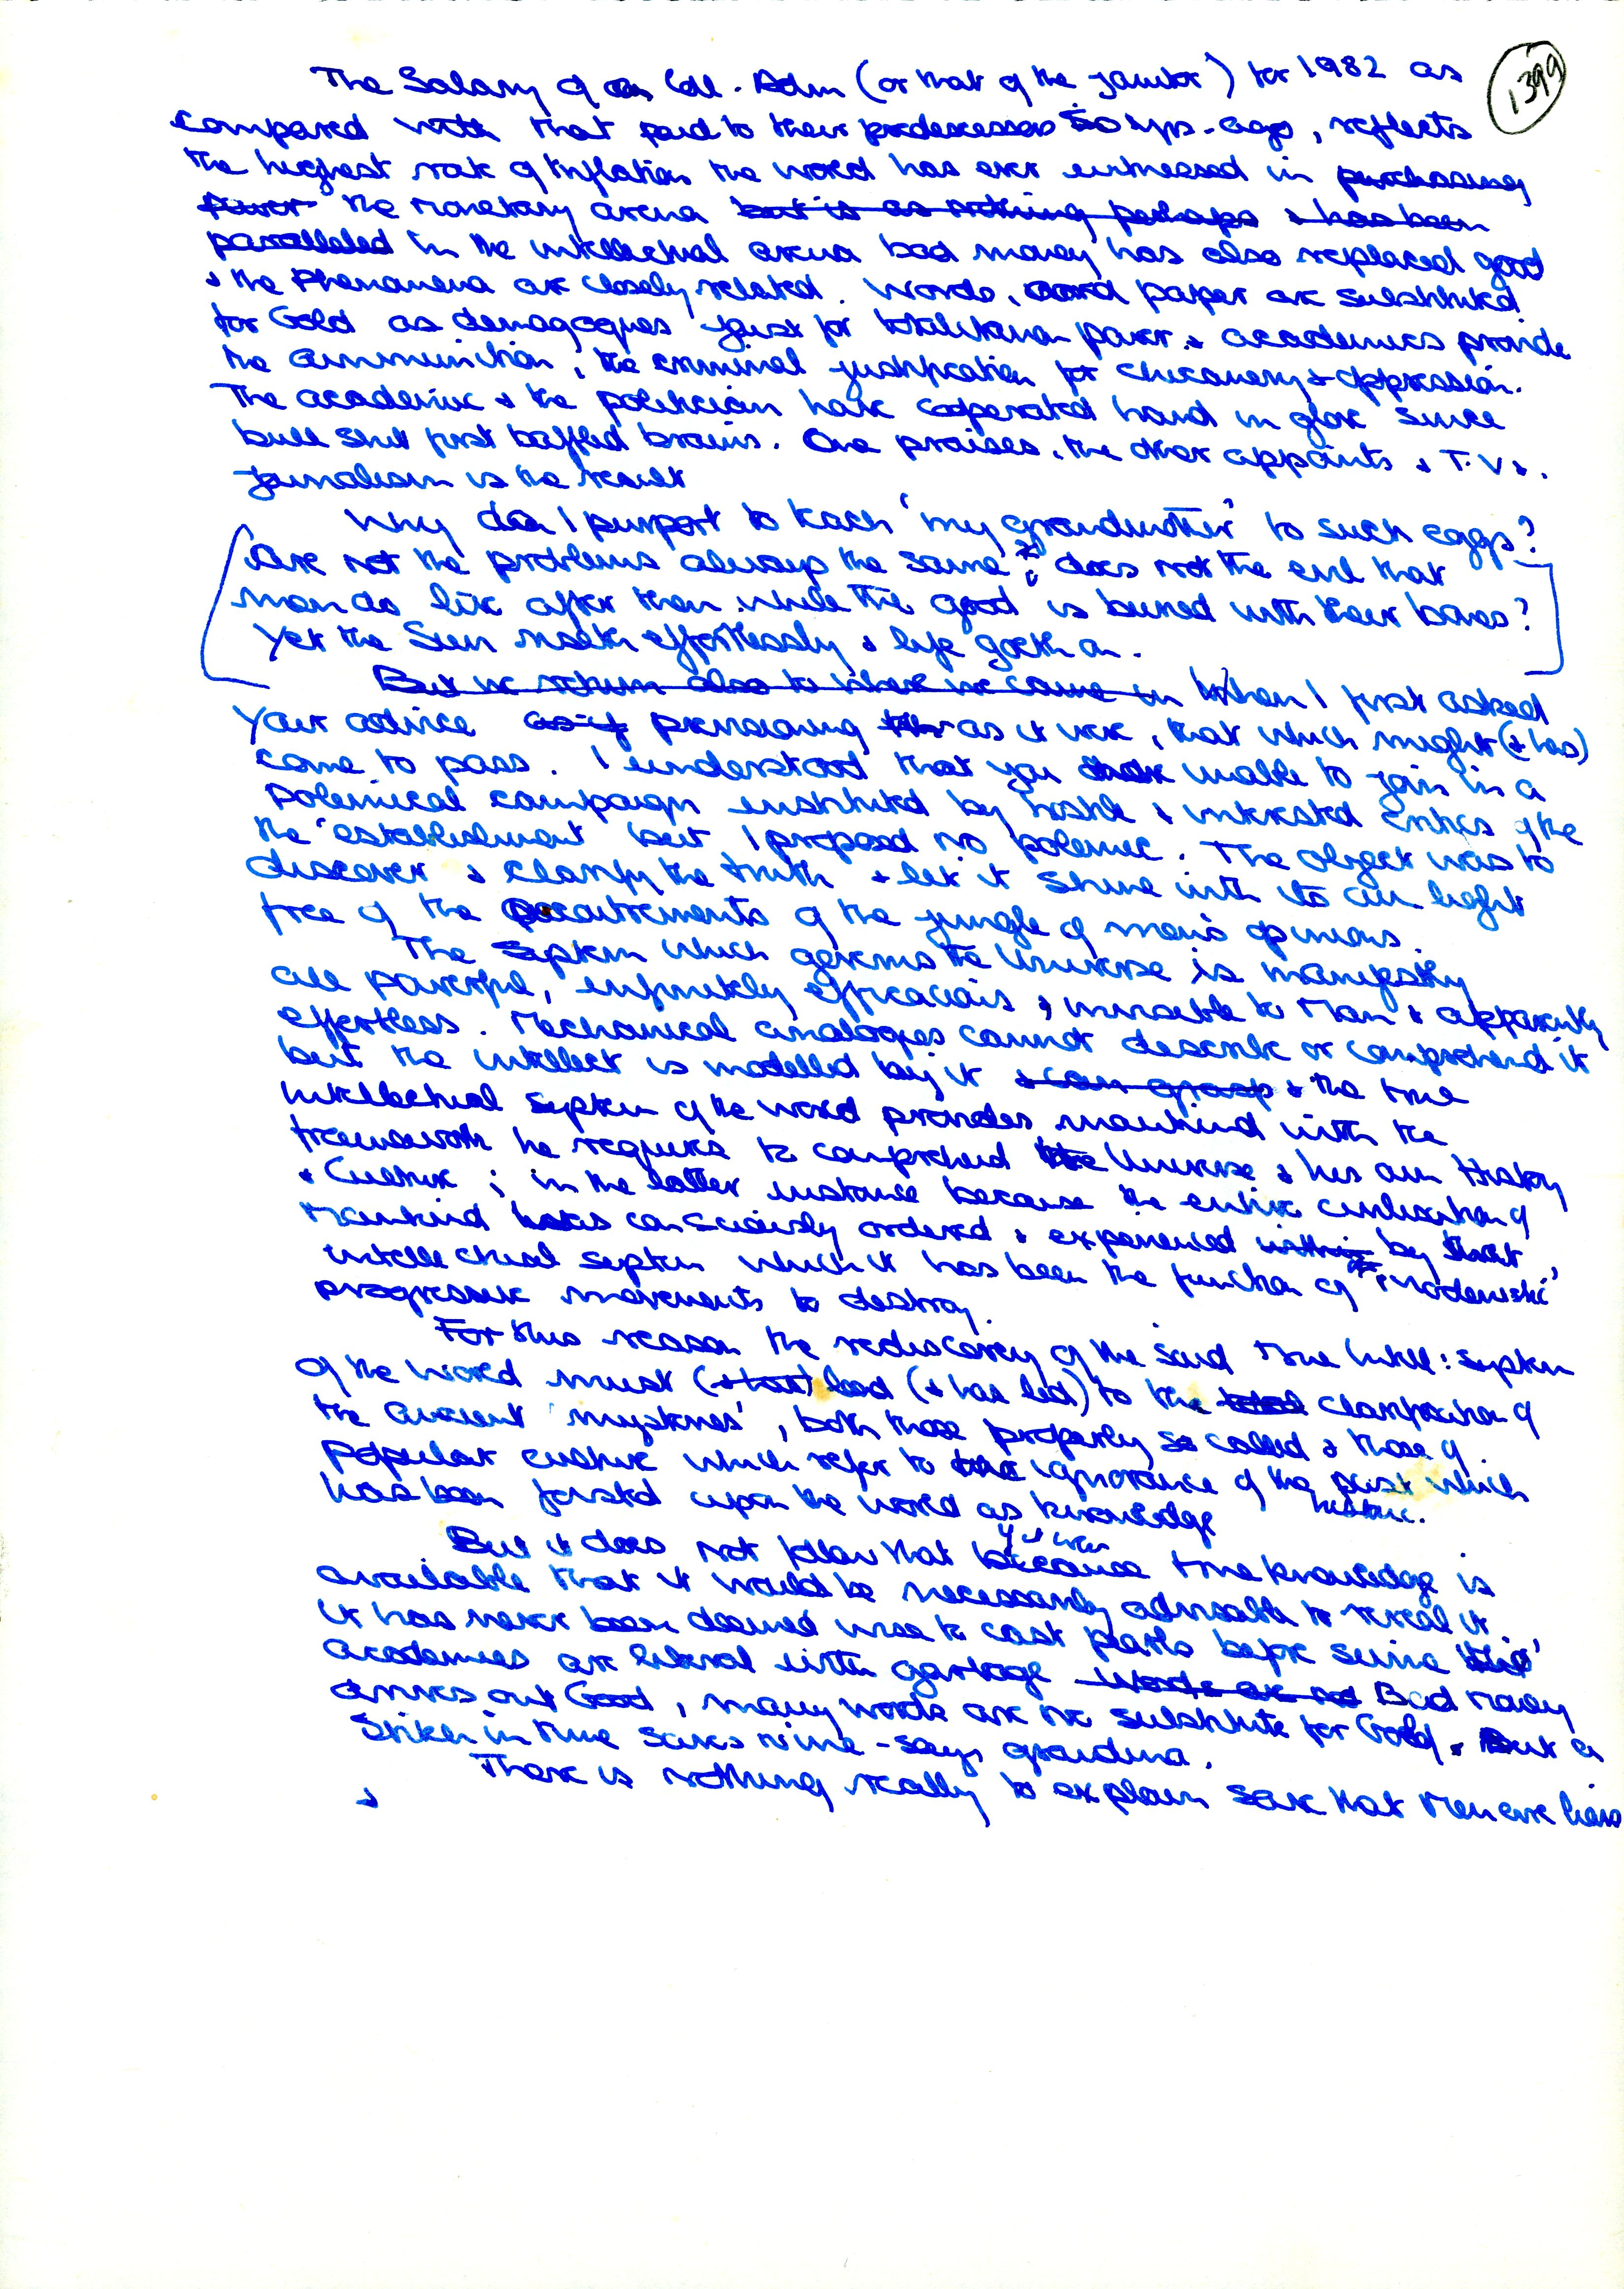 1399
The Salary of an Coll. Adm (or that of the janitor) for 1982 as
compared with that paid to their predecessors 50 yrs. ago, reflects
the highest rate of Inflation the world has ever witnessed in purchasing
power the monetary arena but is as nothing perhaps & has been
paralleled in the intellectual arena bad money has also replaced good
& the Phenomena are closely related. Words, and paper are substituted
for Gold as demagogues joust for totalitarian power & academics provide
the ammunition, the criminal justification for chicanery & oppression.
The academic & the politician have cooperated hand in glove since
bull shit first baffled brains. One praises, the other appoints & T.V.
journalism is the result
Why do I purport to teach 'my grandmother' to such eggs?
Are not the problems always the same; does not the evil that
men do live after them while the good is buried with their bones?
Yet the Sun riseth effortlessly & life goeth on.
But we return also to where we came in When I first asked
Your advice as if premising as it were, that which might (& has)
come to pass. I understood that you unable to join in a
Polemical campaign instituted by hostile & interested critics of the
the 'establishment' but I proposed no polemic. The object was to
discover & clarify the truth & let it shine with its own light
free of the accoutrements of the jungle of men's opinions.
The System which governs the Universe is manifestly
all powerful, infinitely efficacious, invisible to Man & apparently
effortless. Mechanical analogies cannot describe or comprehend it
but the intellect is modelled by it & can grasp & the true
Intellectual System of the world provides mankind with the
framework he requires to comprehend the Universe & his own History
& Culture; in the latter instance because the entire civilisation of
Mankind was consciously ordered & experienced within by that
intellectual system which it has been the function of 'modernistic'
progressive movements to destroy.
For this reason the rediscovery of the said true Intell: System
of the world must (& has) lead (& has led) to the total clarification of
the ancient 'mysteries', both those properly so called & those of
popular culture which refer to the ignorance of the past which
has been foisted upon the world as knowledge
But it does not follow that because true knowledge is
available that it would be necessarily advisable to reveal it.
It has never been deemed wise to cast pearls before swine
academics are liberal with garbage Words are not Bad money
drives out Good, many words are no substitute for Gold. But a
Stitch in time saves nine - says grandma.
There is nothing really to explain save that men are
&